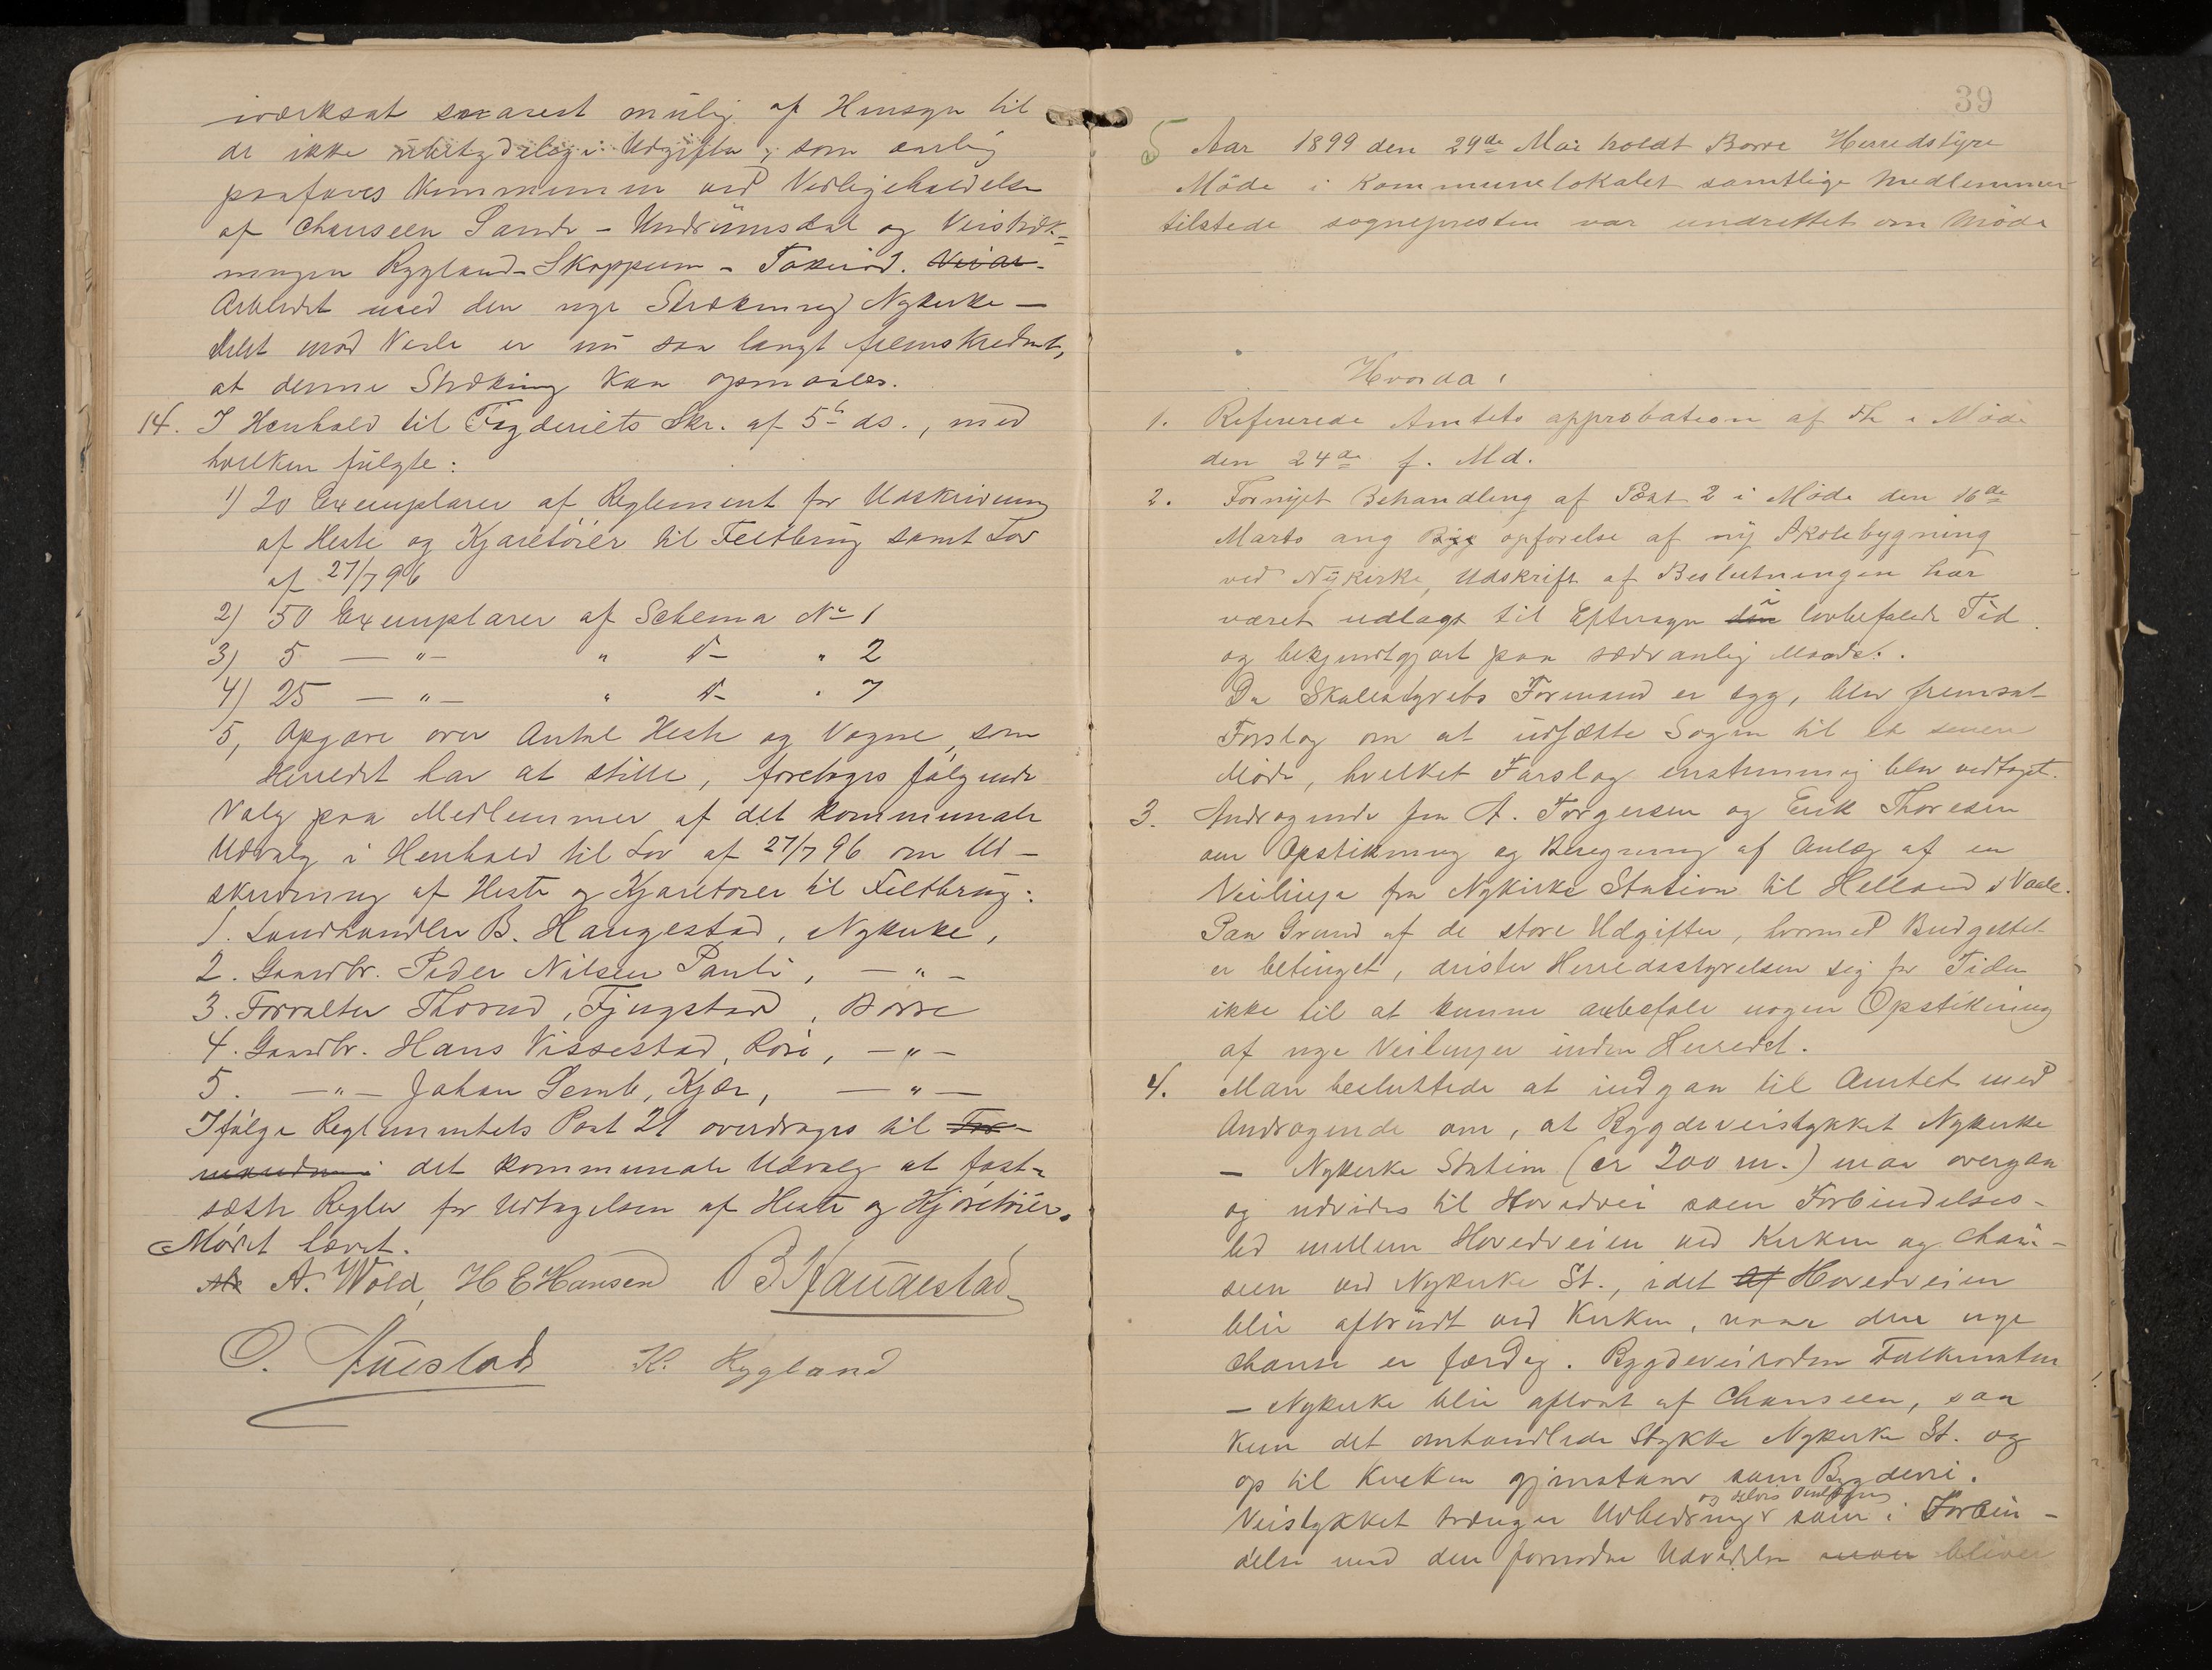 iværksat snarest mulig af Hensyn til
de ikke ubetydelige Udgifter, som aarlig
paaføres Kommunen ved Vedligeholdelse
af Chauseen Sande - Undrumsdal og Veistræk-
ningen Rygland - Skoppum - Takerød.
Arbeidet med den nye Strækning Nykirke -
Delet mod Vaale er nu saa langt fremskredet,
at denne Strækning kan opmaales.
14. I Henhold til Fogderiets Skr. af 5te ds., med
hvilken fulgte:
1) 20 Exemplarer af Reglement for Udskrivning
af Heste og Kjøretøier til Feltbrug samt Lov
af 27/7 96
2) 50 Exemplarer af Schema No 1
3) 5 — " — " d— " 2
4) 25 — " — " d— " 7
5, Opgave over Antal Heste og Vogne, som
Herredet har at stille, foretoges følgende
Valg paa Medlemmer af det kommunale
Udvalg i Henhold til Lov af 27/7 96 om Ud-
skrivning af Heste og Kjøretøier til Feltbrug:
1. Landhandler B. Haugestad, Nykirke,
2. Gaardbr. Peder Nilsen Pauli, — " —
3. Forvalter Thorud, Fjugstad, Borre
4. Gaardbr. Hans Vissestad, Røre, — " —
5. — " — Johan Semb, Kjær, — " —
Ifølge Reglementets Post 21 overdrages til For-
manden i det kommunale Udvalg at fast-
sætte Regler for Udtagelsen af Heste og Kjøretøier.
Mødet hævet.
A. Wold, H E Hansen B. Haugestad
O. K. Rygland
39
5 Aar 1899 den 29de Mai holdt Borre Herredstyre
Møde i Kommunelokalet samtlige Medlemmer
tilstede sognepresten var undrettet om Møde
Hvorda:
1. Refererede Amtets approbation af i Møde
den 24de f. Md.
2. Fornyet Behandling af Post 2 i Møde den 16de
Marts ang opførelse af ny Skolebygning
ved Nykirke, Udskrift af Beslutningen har
været udlagt til Eftersyn i lovbefalede Tid
og bekjendtgjort paa sædvanlig Maade.
Da Skolestyrets Formand er syg, blev fremsat
Forslag om at udsætte Sagen til et senere
Møde, hvilket Forslag enstemmig blev vedtaget.
3. Andragende fra A. Torgersen og Erik Thoresen
om Opstikning og Beregning af Anlæg af en
Veilinje fra Nykirke Station til Helland i Vaale.
Paa Grund af de store Udgifter, hvormed Budgettet
er betynget, drister Herredsstyrelsen sig for Tiden
ikke til at kunne anbefale nogen Opstikning
af nye Veilinjer inden Herredet.
4. Man besluttede at indgaa til Amtet med
Andragende om, at Bygdeveistykket Nykirke
— Nykirke Station (cr 200 m.) maa overgaa
og udvides til Hovedvei som Forbindelses-
led mellem Hovedveien ved Kirken og Chau-
seen ved Nykirke St., idet af Hovedveien
blir afbrudt ved Kirken, naar den nye
Chause er færdig. Bygdeveiroden Falkensten
— Nykirke blir afløst af Chauseen, saa
kun det omhandlede Stykke Nykirke St. og
op til Kirken gjenstaar som Bygdevei.
og delvis Omlægning
Veistykket trænger Udbedringer som i Forbin-
delse med den fornødne Udvidelse maa bliver